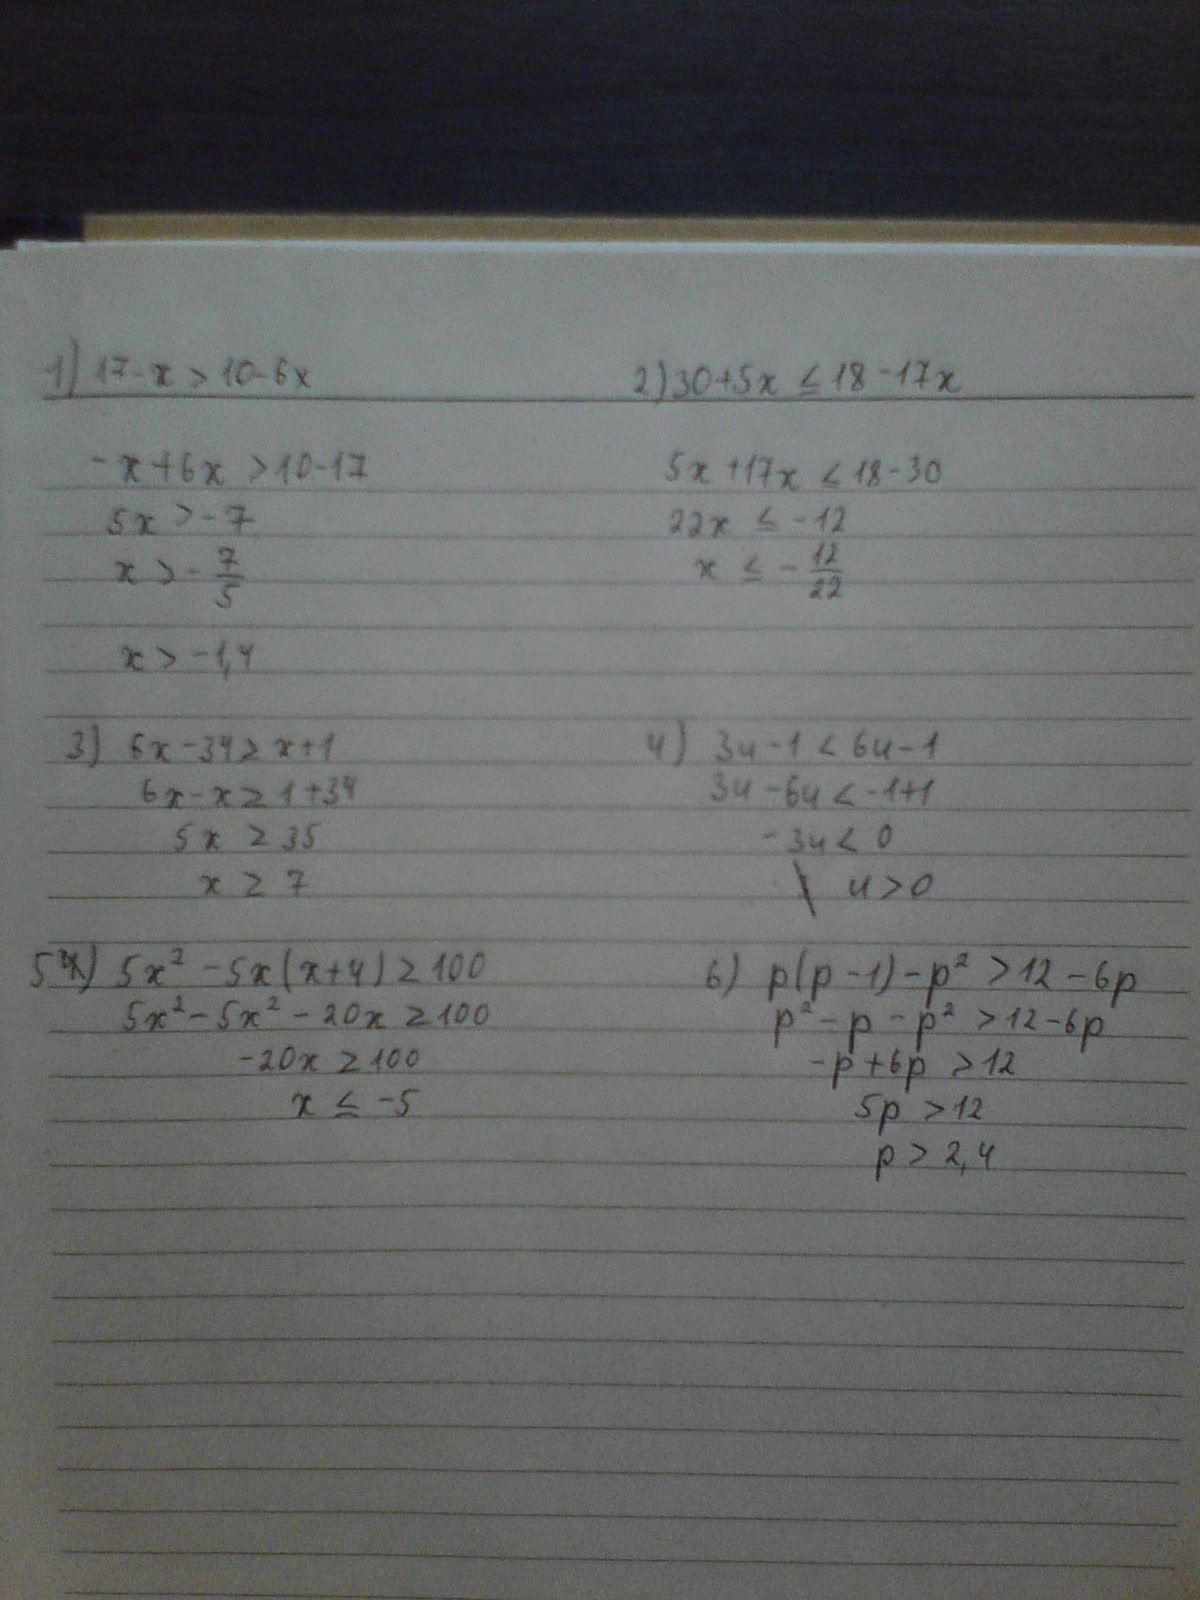 1) 17-x > 10-6x
-x+6x > 10-17
5x > -7
x > - 7/5
x > -1,4
2) 30+5x ≤ 18-17x
5x+17x ≤ 18-30
22x ≤ -12
x ≤ - 12/22
3) 6x-34 ≥ x+1
6x-x ≥ 1+34
5x ≥ 35
x ≥ 7
4) 3u-1 < 6u-1
3u-6u < -1+1
-3u < 0
u > 0
5) 5x² - 5x(x+4) ≥ 100
5x² - 5x² - 20x ≥ 100
-20x ≥ 100
x ≤ -5
6) p(p-1) - p² > 12 - 6p
p² - p - p² > 12-6p
-p+6p > 12
5p > 12
p > 2,4